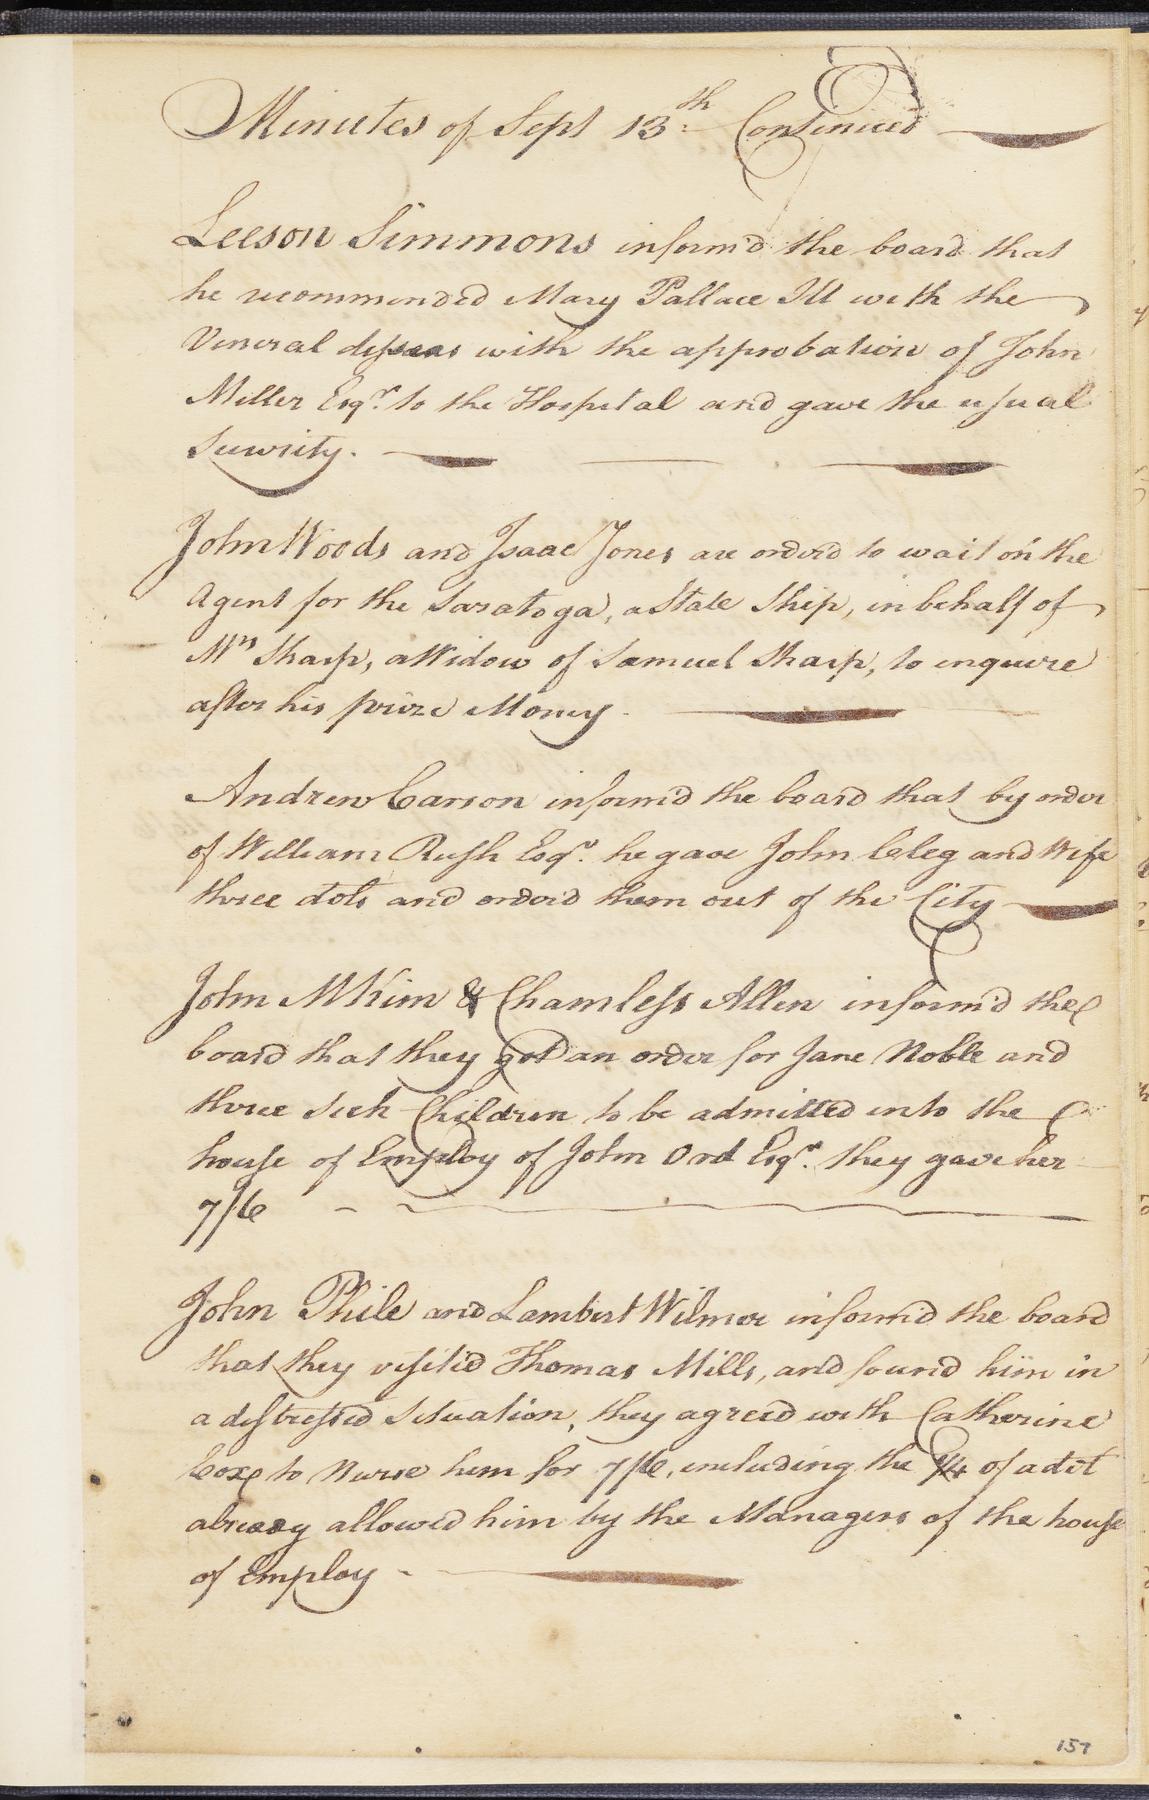 Minutes of Sept 13th Continued
Leeson Simmons inform'd the board that
he recommended Mary Pallace Ill with the
Veneral diseas with the approbation of John
Miller Esqr. to the Hospital and gave the usual
Security.
John Woods and Isaac Jones are orderd to wait on the
Agent for the Saratoga, a State Ship, in behalf of
Mrs Sharp, a Widow of Samuel Sharp, to enquire
after his prize Money
Andrew Carson inform'd the board that by order
of William Rush Esqr. he gave John Cleg and Wife
three dols and orderd them out of the City
John McKim & Chamless Allen inform'd the
board that they got an order for Jane Noble and
three sick Children to be admitted into the
house of Employ of John Ord Esqr. they gave her
7/6
John Phile and Lambert Wilmer inform'd the board
that they visited Thomas Mills, and found him in
a distressed situation, they agreed with Catherine
Cox to Nurse him for 7/6, including the 1/4 of a dol
already allowed him by the Managers of the house
of Employ
157